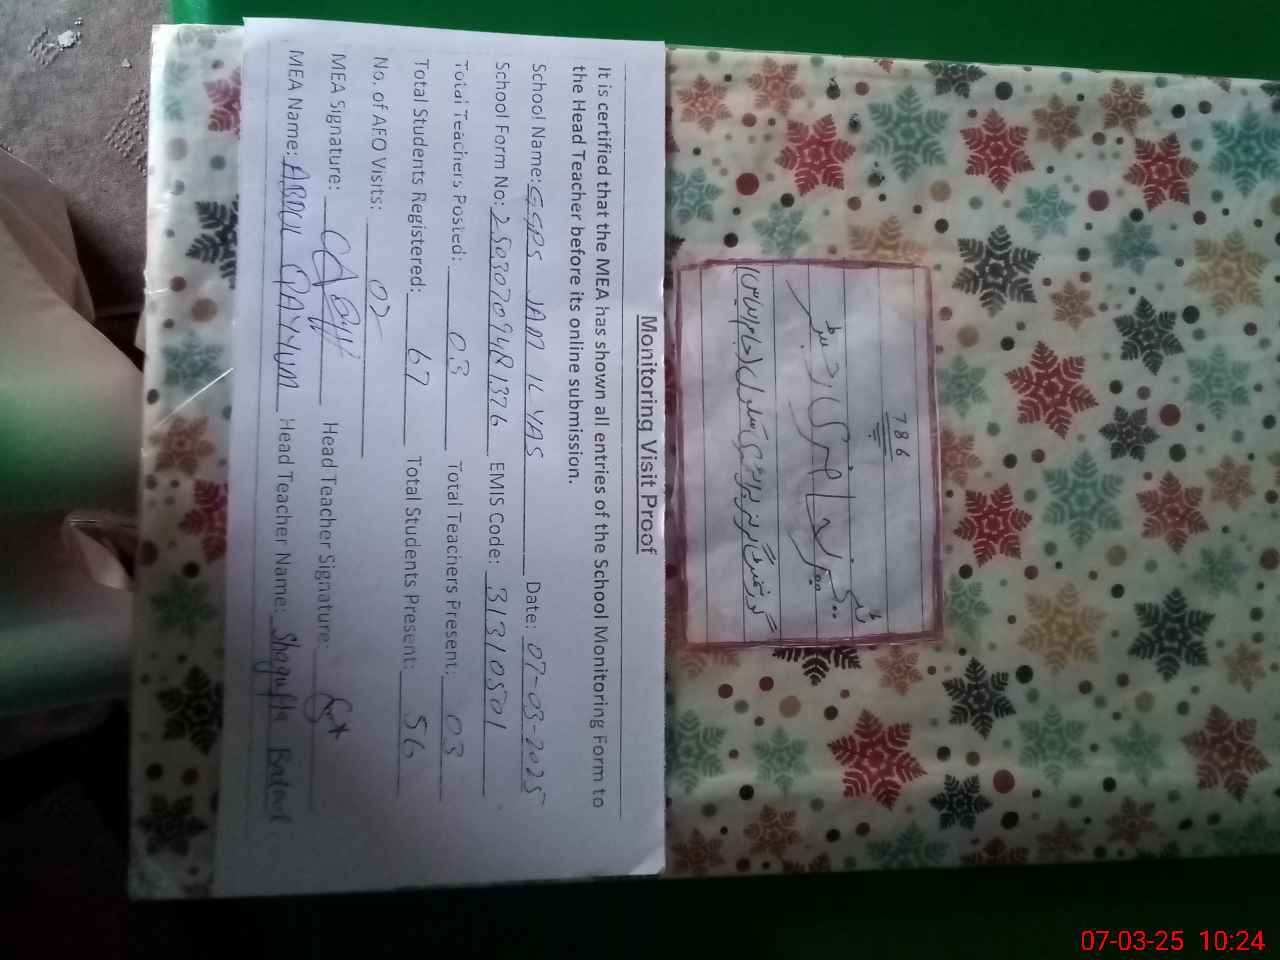 786
ٹیچر حاضری رجسٹر
Monitoring Visit Proof
It is certified that the MEA has shown all entries of the School Monitoring Form to
the Head Teacher before its online submission.
School Name: GGPS JAM ILYAS Date: 07-03-2025
School Form No: 2503070948 1376 EMIS Code: 31310501
Total Teachers Posted: 03 Total Teachers Present: 03
Total Students Registered: 67 Total Students Present: 56
No. of AFO Visits: 02
MEA Signature: Head Teacher Signature:
MEA Name: ABDUL QAYYUM Head Teacher Name: Shagufta
07-03-25 10:24